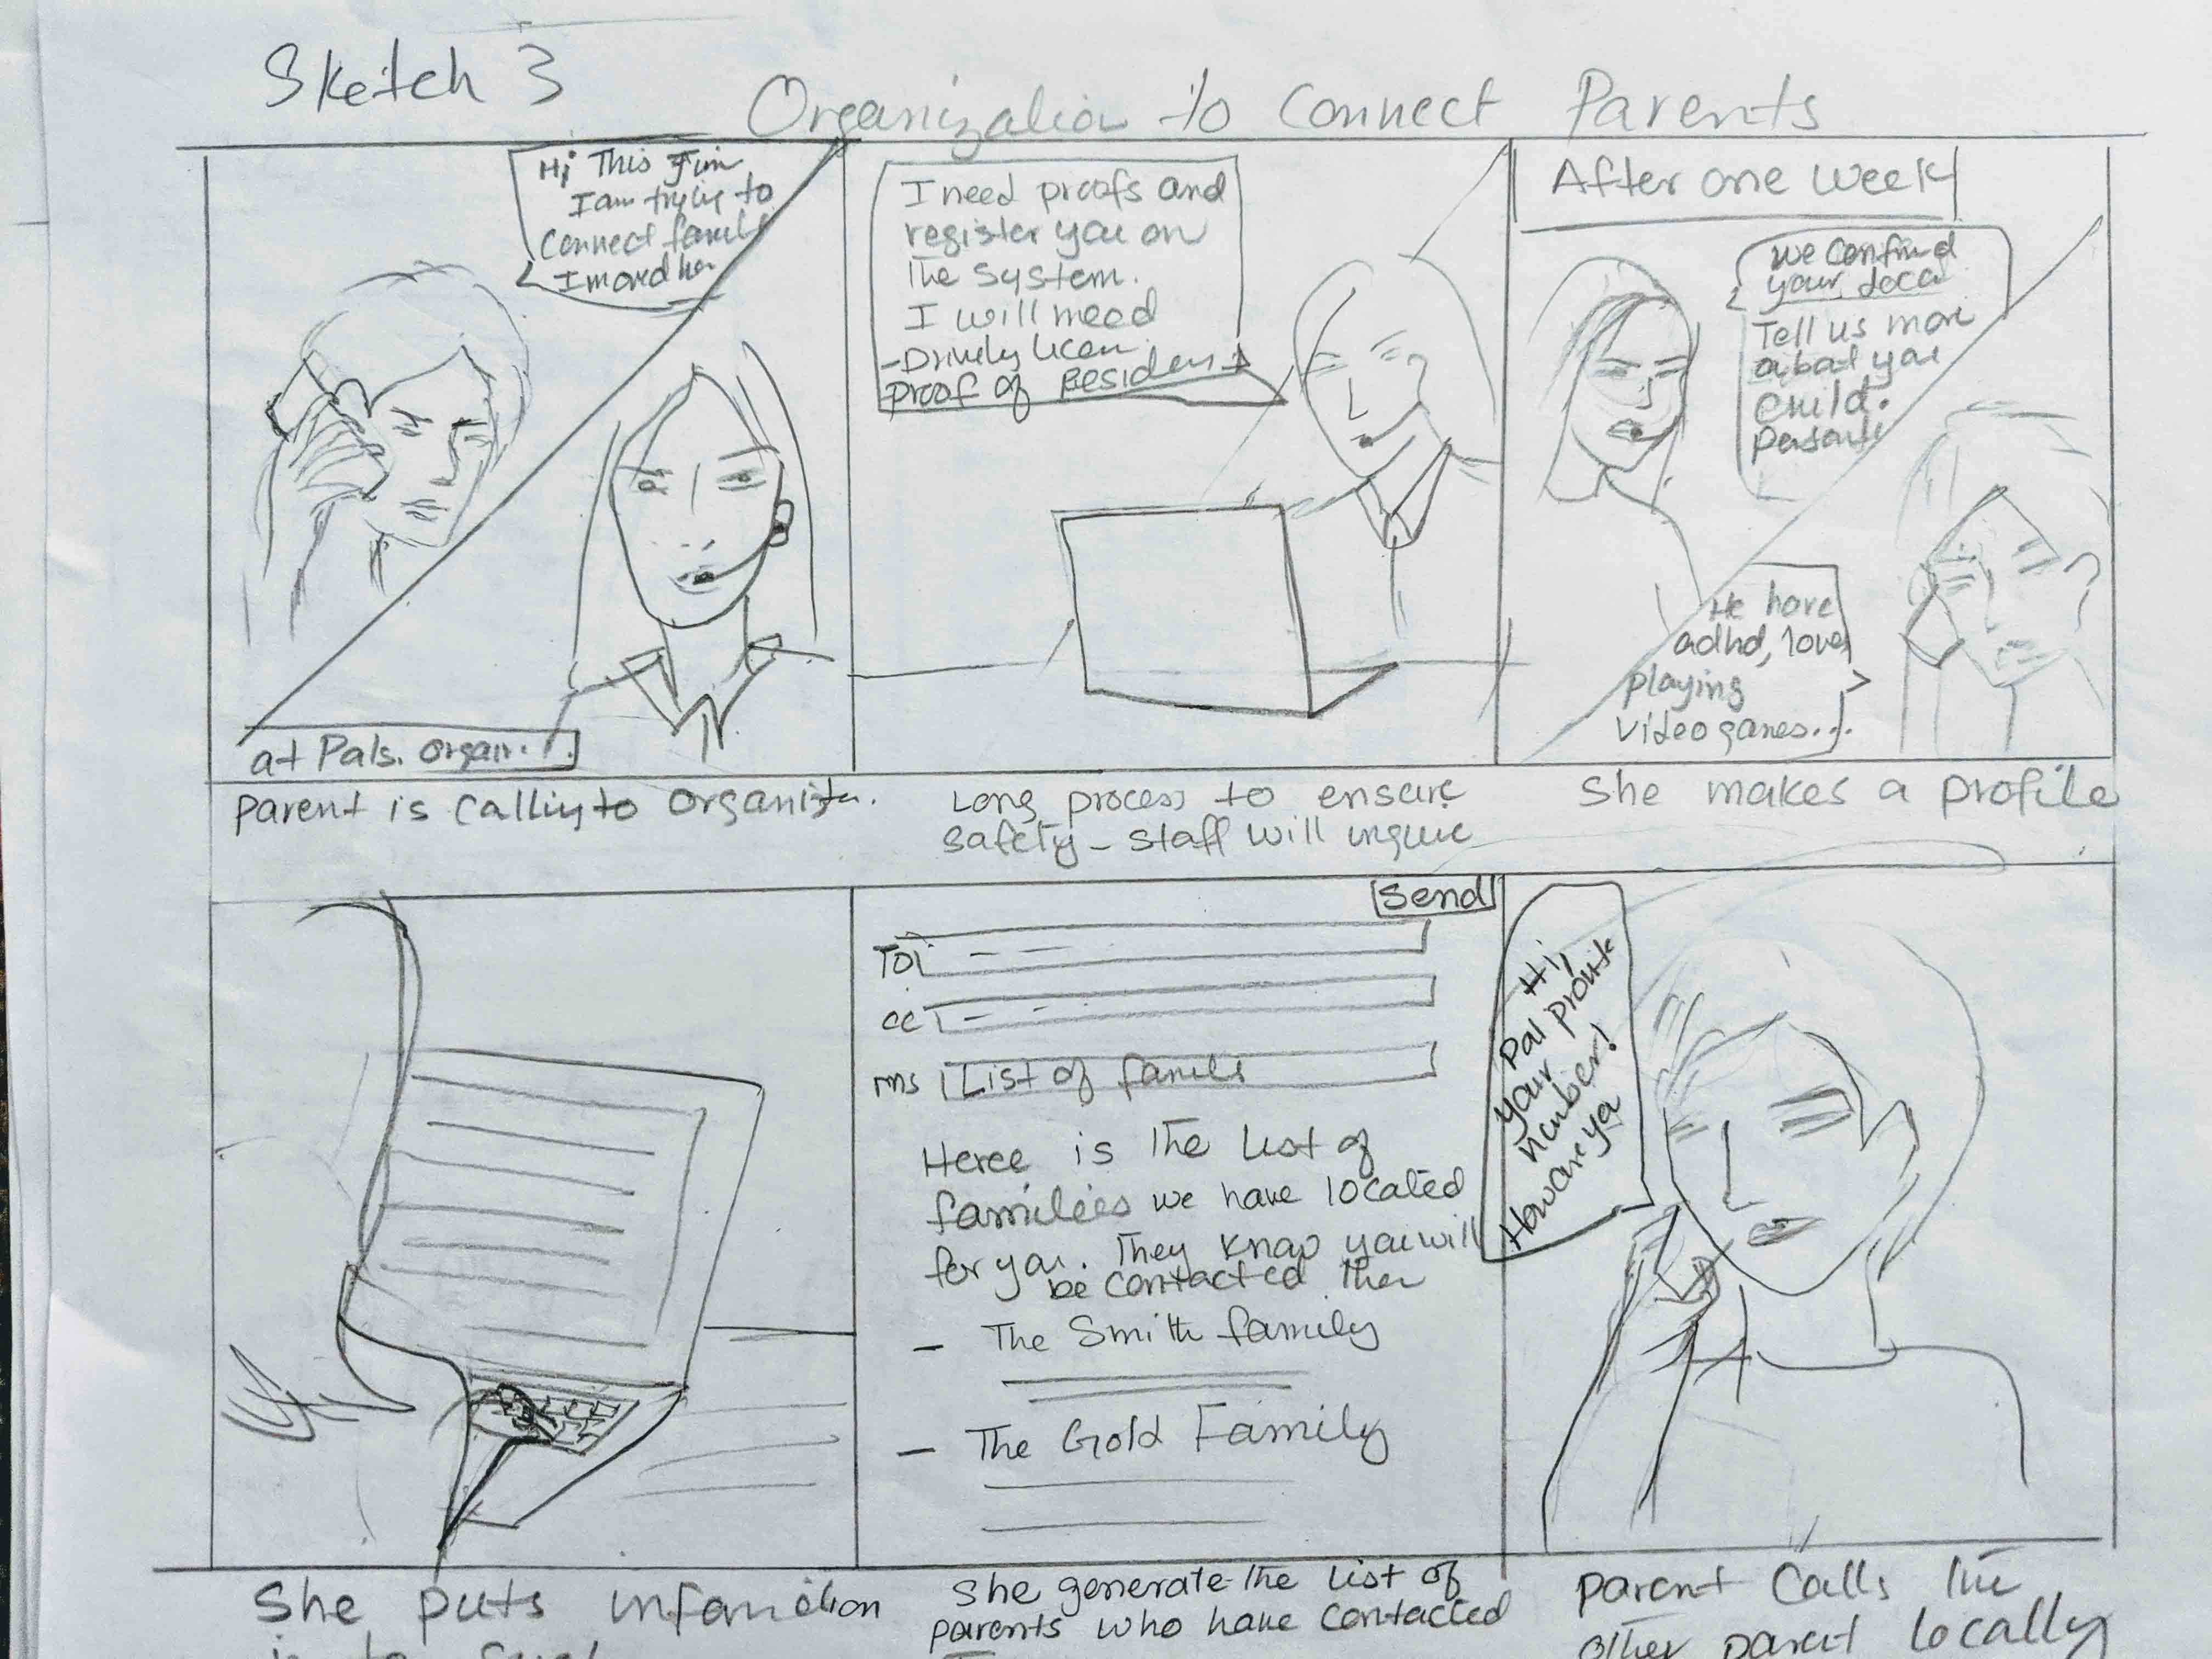 Sketch 3
Organization to Connect Parents
Hi This Jim
I am trying to
Connect famil
I moved her
at Pals. organ.
Parent is calling to organiz
I need proofs and
register you on
the system.
I will need
- Drively licen
proof of Resident
Long process to ensure
safety - staff will inquire
After one week
we confirmd
your loca
Tell us more
about you
child.
Persont
He have
adhd, loves
playing
video games...
She makes a profile
She puts information
into
Send
To:
cc
ms List of famili
Heree is the list of
families we have located
for you. They know you will
be contacted then
- The Smith family
- The Gold Family
She generate the list of
parents who have contacted
Hi,
Pal provide
your
number!
How are ya
Parent calls the
other parent locally